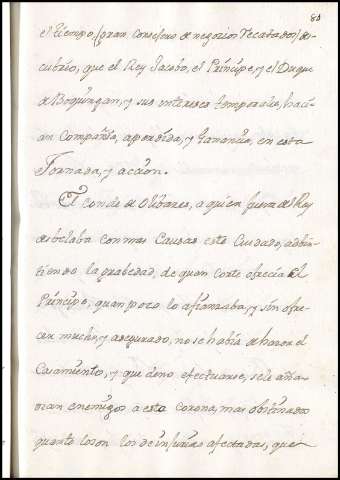 80
el tiempo, (gran Consejero de negocios Recatados) des-
cubrio, que el Rey Jacobo, el Principe, y el Duque
de Boquingan, y sus intereses temporales, haci-
an Compañia, aperdida, y ganancia, en esta
Jornada, y accion.
El Conde de Olibares, a quien fuera del Rey
desbelaba con mas Causas este Cuidado, adbir-
tiendo la de quan corte ofrecia el
Principe, quan poco lo afianzaba, y sin ofre-
cer mucho, y asegurado, no se habia de hacer el
Casamiento, y que deno efectuarse, se le aña-
dian enemigos a esta Corona, mas obstinados
quanto loson los de injurias afectadas, que